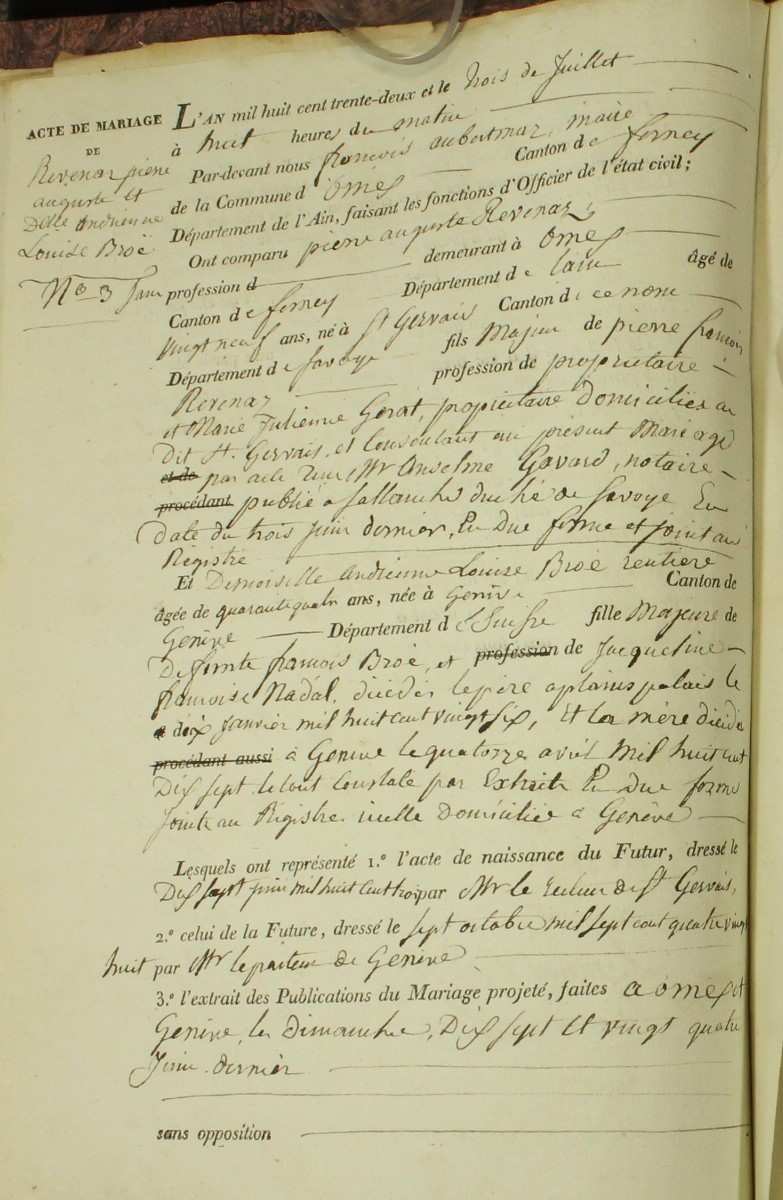 ACTE DE MARIAGE
DE
Revenaz pierre
auguste et
Delle Andrienne
Louise Broë
N° 3
L'AN mil huit cent trente-deux et le trois de Juillet
à huit heures du matin
Par-devant nous françois aubertmaz, maire
de la Commune d'Ornex Canton de ferney
Département de l'Ain, faisant les fonctions d'Officier de l'état civil;
Ont comparu pierre auguste Revenaz
profession d demeurant à Ornex
Canton de ferney Département de l'ain âgé de
vingt neuf ans, né à St Gervais Canton de ce nom
Département de Savoye fils Majeur de pierre françois
Revenaz profession de propriétaire
et Marie Julienne Gerat, propriétaire Domiciliés au
dit St. Gervais, et Consentant au présent Mariage
et de par acte Mr Anselme Gavard, notaire
procédant publié a Sallanche duché de Savoye En
date du trois juin dernier, En Due forme et joint au
Registre
Et Demoiselle Andrienne Louise Broë rentière
âgée de quarante quatre ans, née à Genève Canton de
Genève Département de Suisse fille Majeure de
Defunte françois Broë, et profession de Jacqueline
françoise Nadal, décédés le père a plainpalais le
dix Janvier mil huit cent vingt six, Et la mère décédée
procédant aussi à Genève le quatorze avril Mil huit cent
Dix sept le tout Constaté par Extraits En Due forme
joints au Registre. icelle Domiciliée à Genève
Lesquels ont représenté 1.° l'acte de naissance du Futur, dressé le
Dix sept juin mil huit cent trois par Mr le Recteur de St Gervais,
2.° celui de la Future, dressé le sept octobre mil sept cent quatre vingt
huit par Mr le pasteur de Genève
3.° l'extrait des Publications du Mariage projeté, faites a ornex et
Genève, les dimanche, Dix sept et vingt quatre
Juin dernier
sans opposition